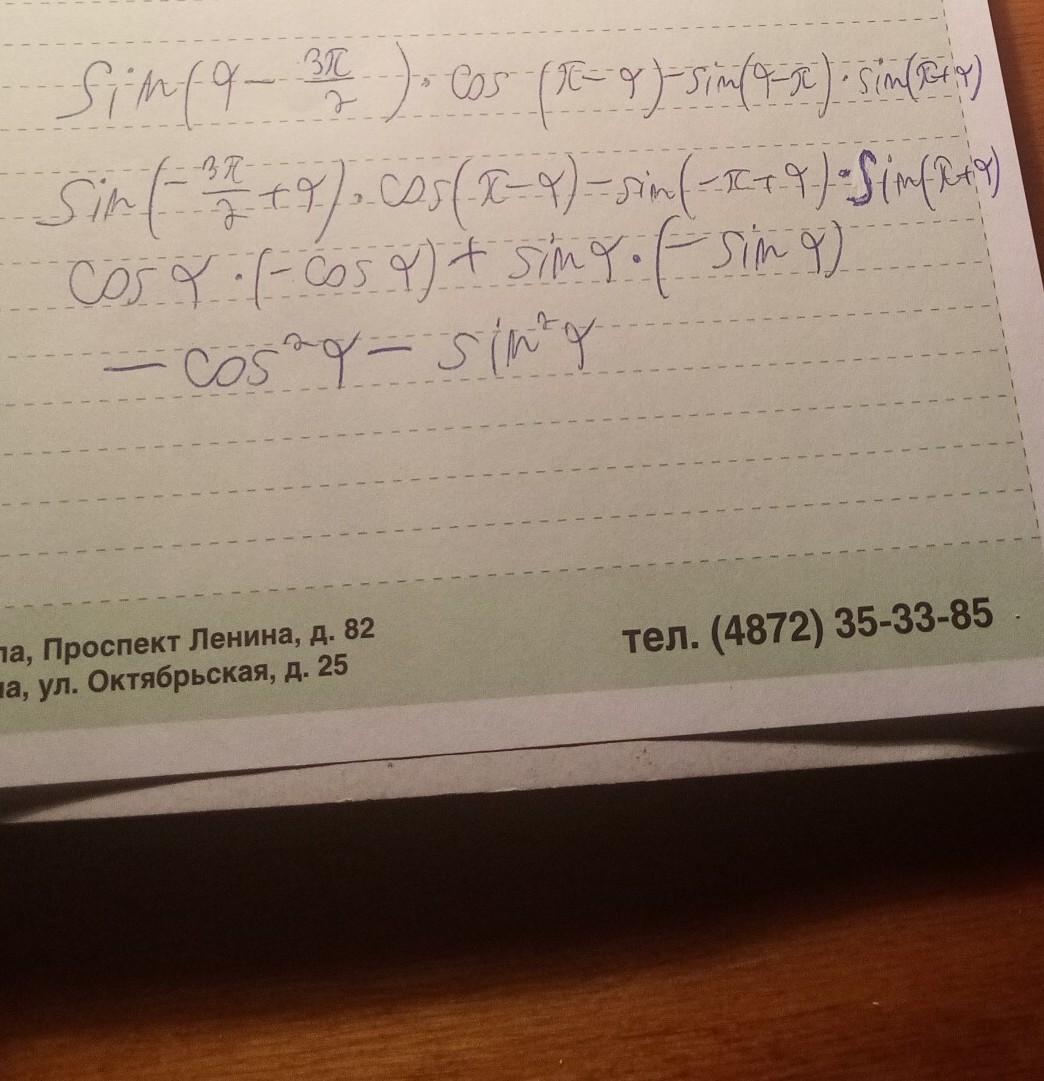 Sin(α - 3π/2) · cos (π - α) - sin(α - π) · sin(π + α)
Sin(-3π/2 + α) · cos(π - α) - sin(-π + α) · Sin(π + α)
cos α · (-cos α) + sin α · (- sin α)
- cos²α - sin²α
ла, Проспект Ленина, д. 82
ла, ул. Октябрьская, д. 25
тел. (4872) 35-33-85